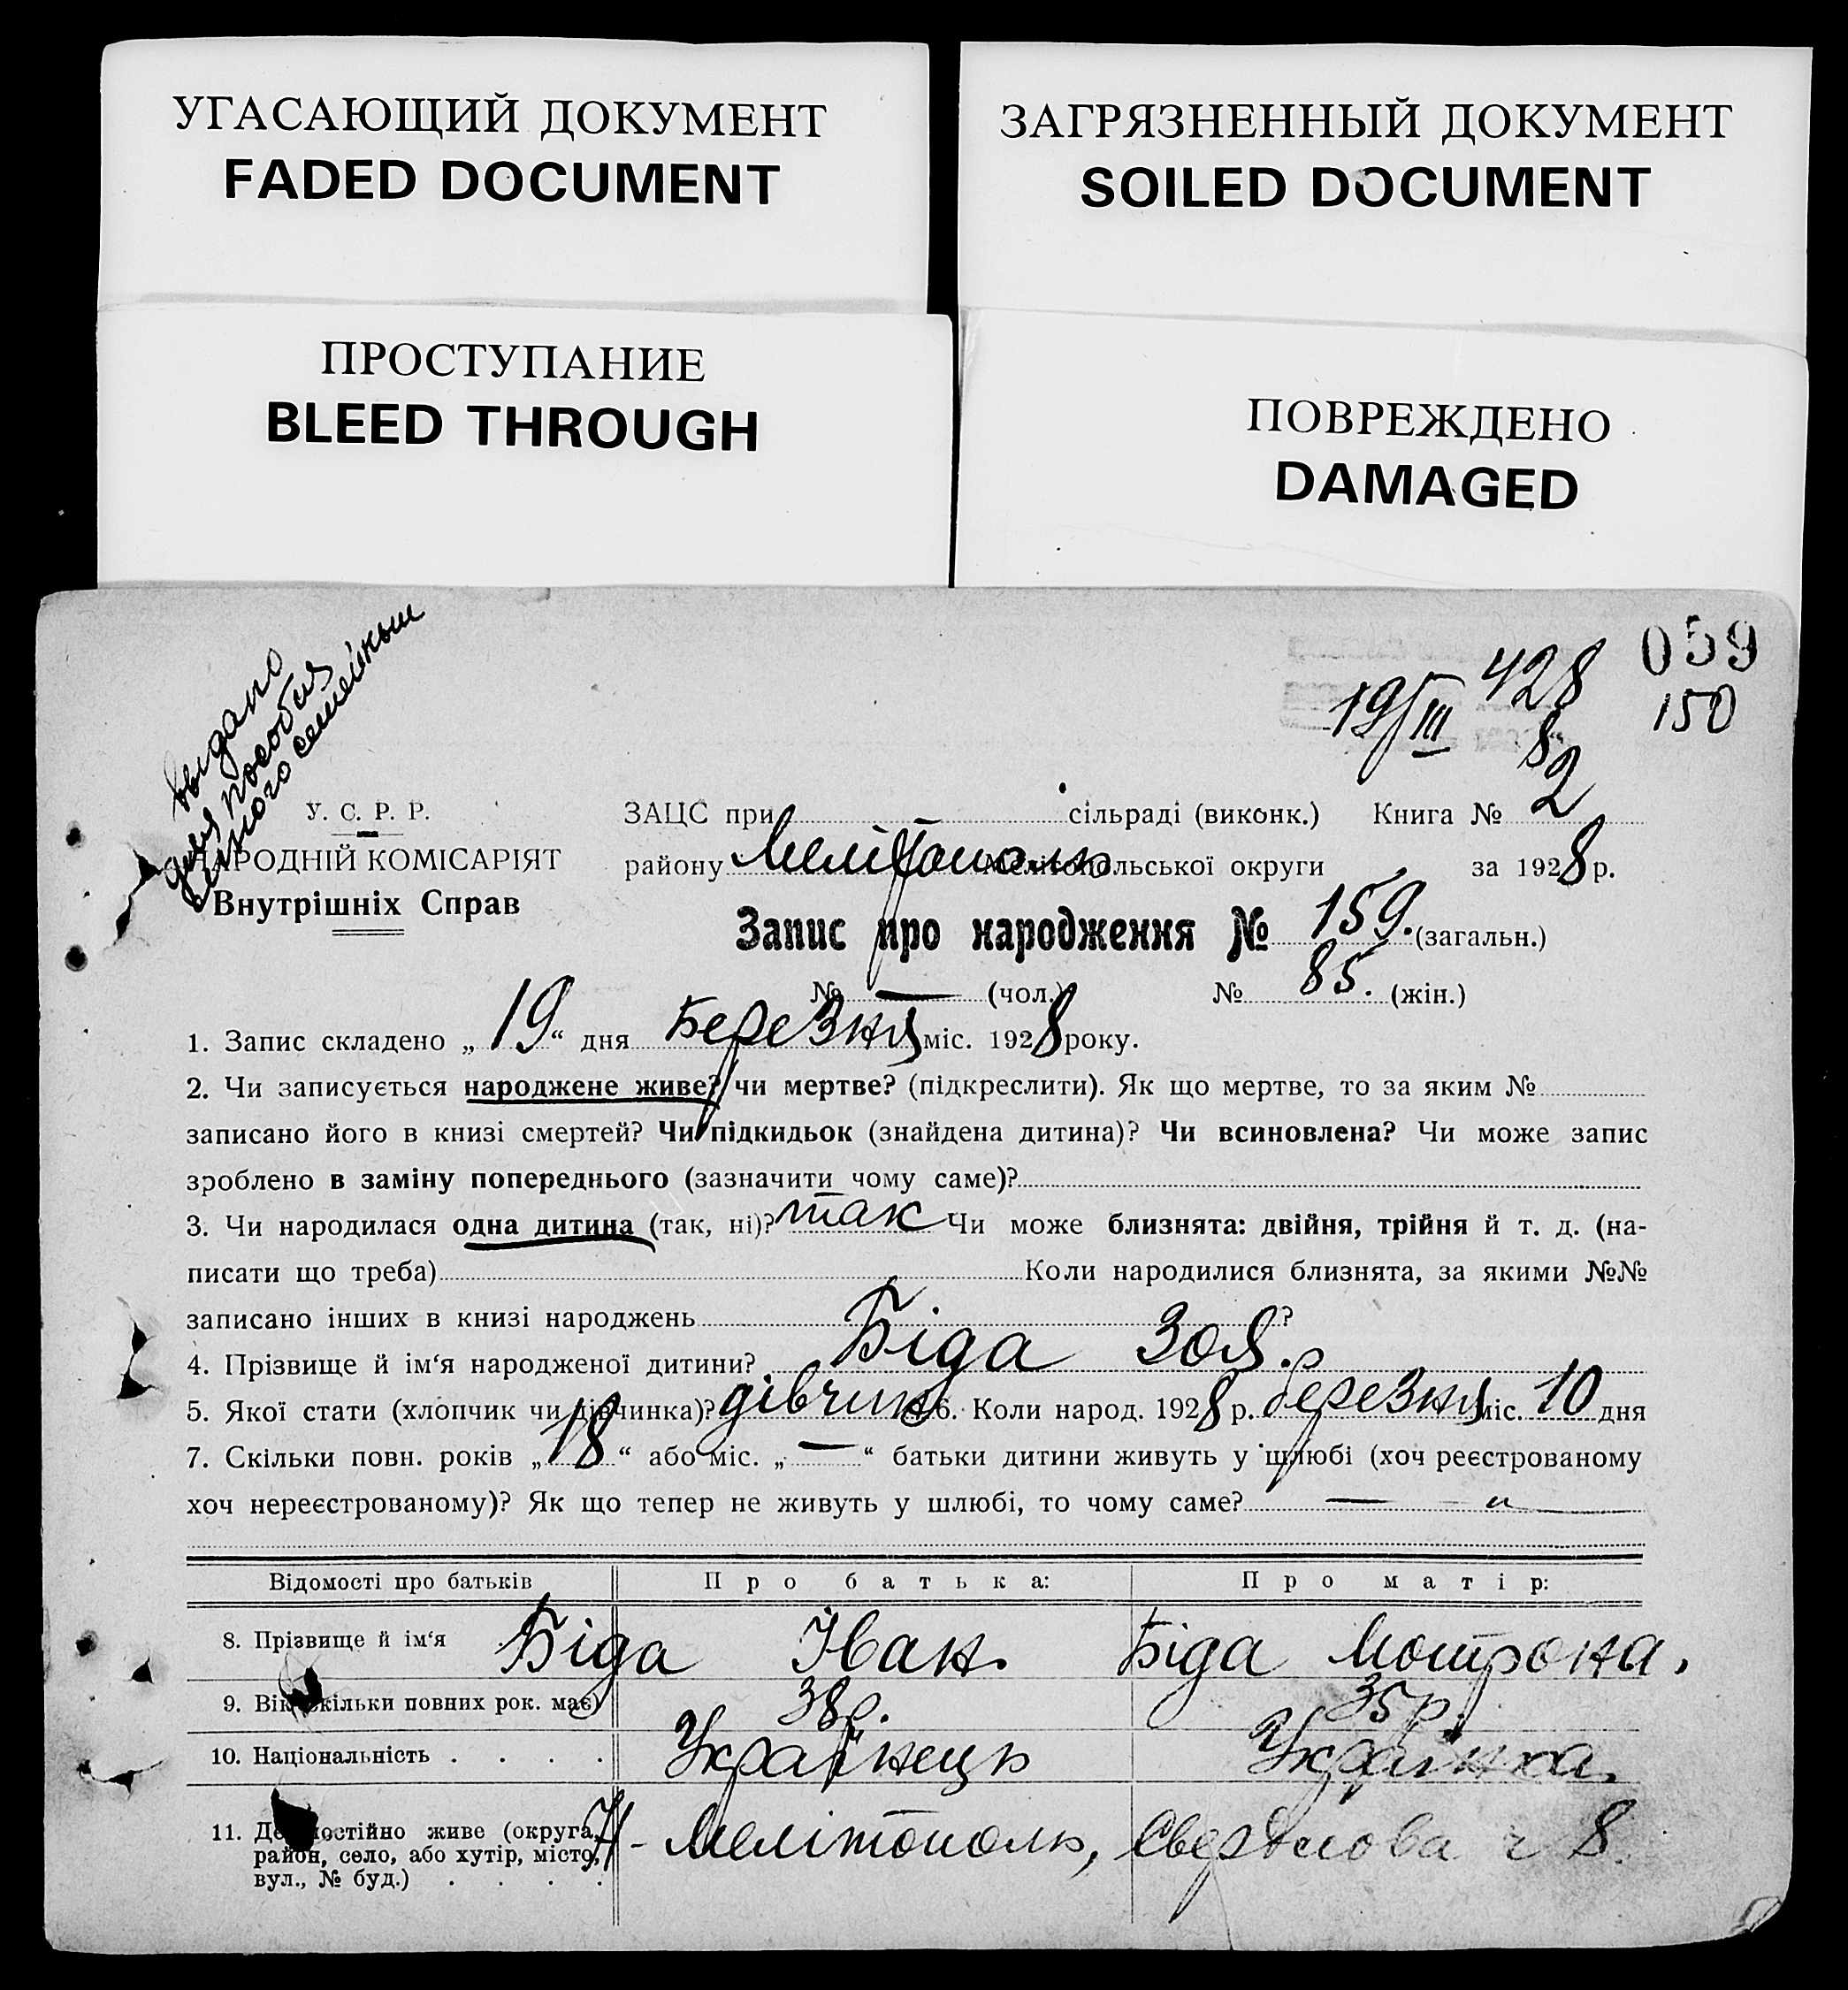 УГАСАЮЩИЙ ДОКУМЕНТ
FADED DOCUMENT
ЗАГРЯЗНЕННЫЙ ДОКУМЕНТ
SOILED DOCUMENT
ПРОСТУПАНИЕ
BLEED THROUGH
ПОВРЕЖДЕНО
DAMAGED
выдано
для пособия
семейным
059
428
19/III 8
150
У. С. Р. Р.
НАРОДНІЙ КОМІСАРІЯТ
Внутрішніх Справ
ЗАЦС при сільраді (виконк.) Книга № 2
району Мелітополь Мелітопольської округи за 1928 р.
Запис про народження № 159. (загальн.)
№ — (чол.) № 85. (жін.)
1. Запис складено „ 19 “ дня Березня міс. 1928 року.
2. Чи записується народжене живе? чи мертве? (підкреслити). Як що мертве, то за яким №
записано його в книзі смертей? Чи підкидьок (знайдена дитина)? Чи всиновлена? Чи може запис
зроблено в заміну попереднього (зазначити чому саме)?
3. Чи народилася одна дитина (так, ні)? так Чи може близнята: двійня, трійня й т. д. (на-
писати що треба) Коли народилися близнята, за якими №№
записано інших в книзі народжень ?
4. Прізвище й ім‘я народженої дитини? Біда Зоя.
5. Якої стати (хлопчик чи дівчинка)? дівчина 6. Коли народ. 1928 р. березня міс. 10 дня
7. Скільки повн. років „ 18 “ або міс. „ — “ батьки дитини живуть у шлюбі (хоч реєстрованому
хоч нереєстрованому)? Як що тепер не живуть у шлюбі, то чому саме? — „ —
Відомості про батьків Про батька: Про матір:
8. Прізвище й ім‘я Біда Іван. Біда Мотрона.
9. Вік (скільки повних рок. має) 38 р. 35 р.
10. Національність . . . . Українець Українка.
11. Де постійно живе (округа, район, село, або хутір, місто, вул., № буд.) . . . . Мелітополь, Свердлова 8.